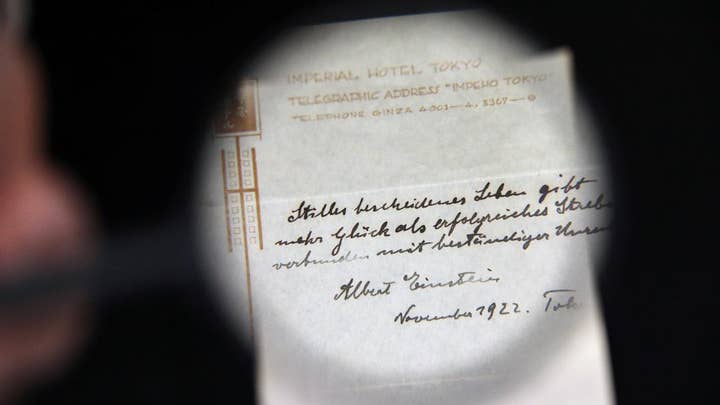 IMPERIAL HOTEL TOKYO
TELEGRAPHIC ADDRESS "IMPEHO TOKYO"
TELEPHONE GINZA
Stilles bescheidenes Leben gibt
mehr Glück als erfolgreiches Strebe
verbunden mit beständiger
Albert Einstein
November 1922. Tok